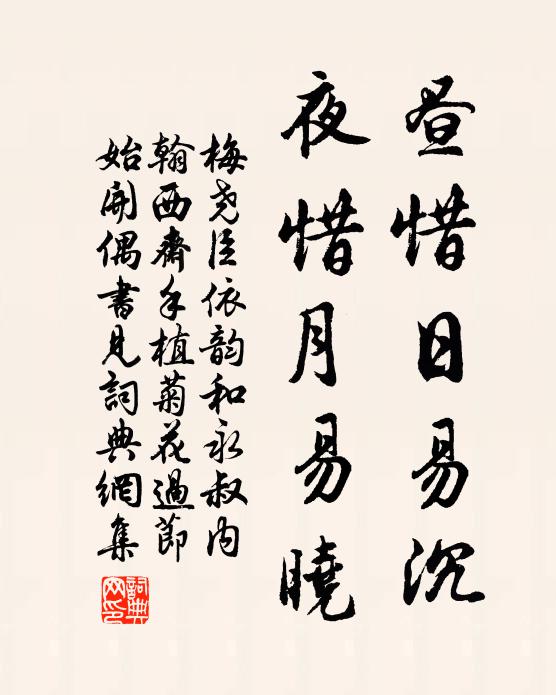 昼惜日易沉
夜惜月易曉
梅尧臣依韵和永叔内
翰西齋手植菊花過節
始開偶書見詞典網集
詞典
网印